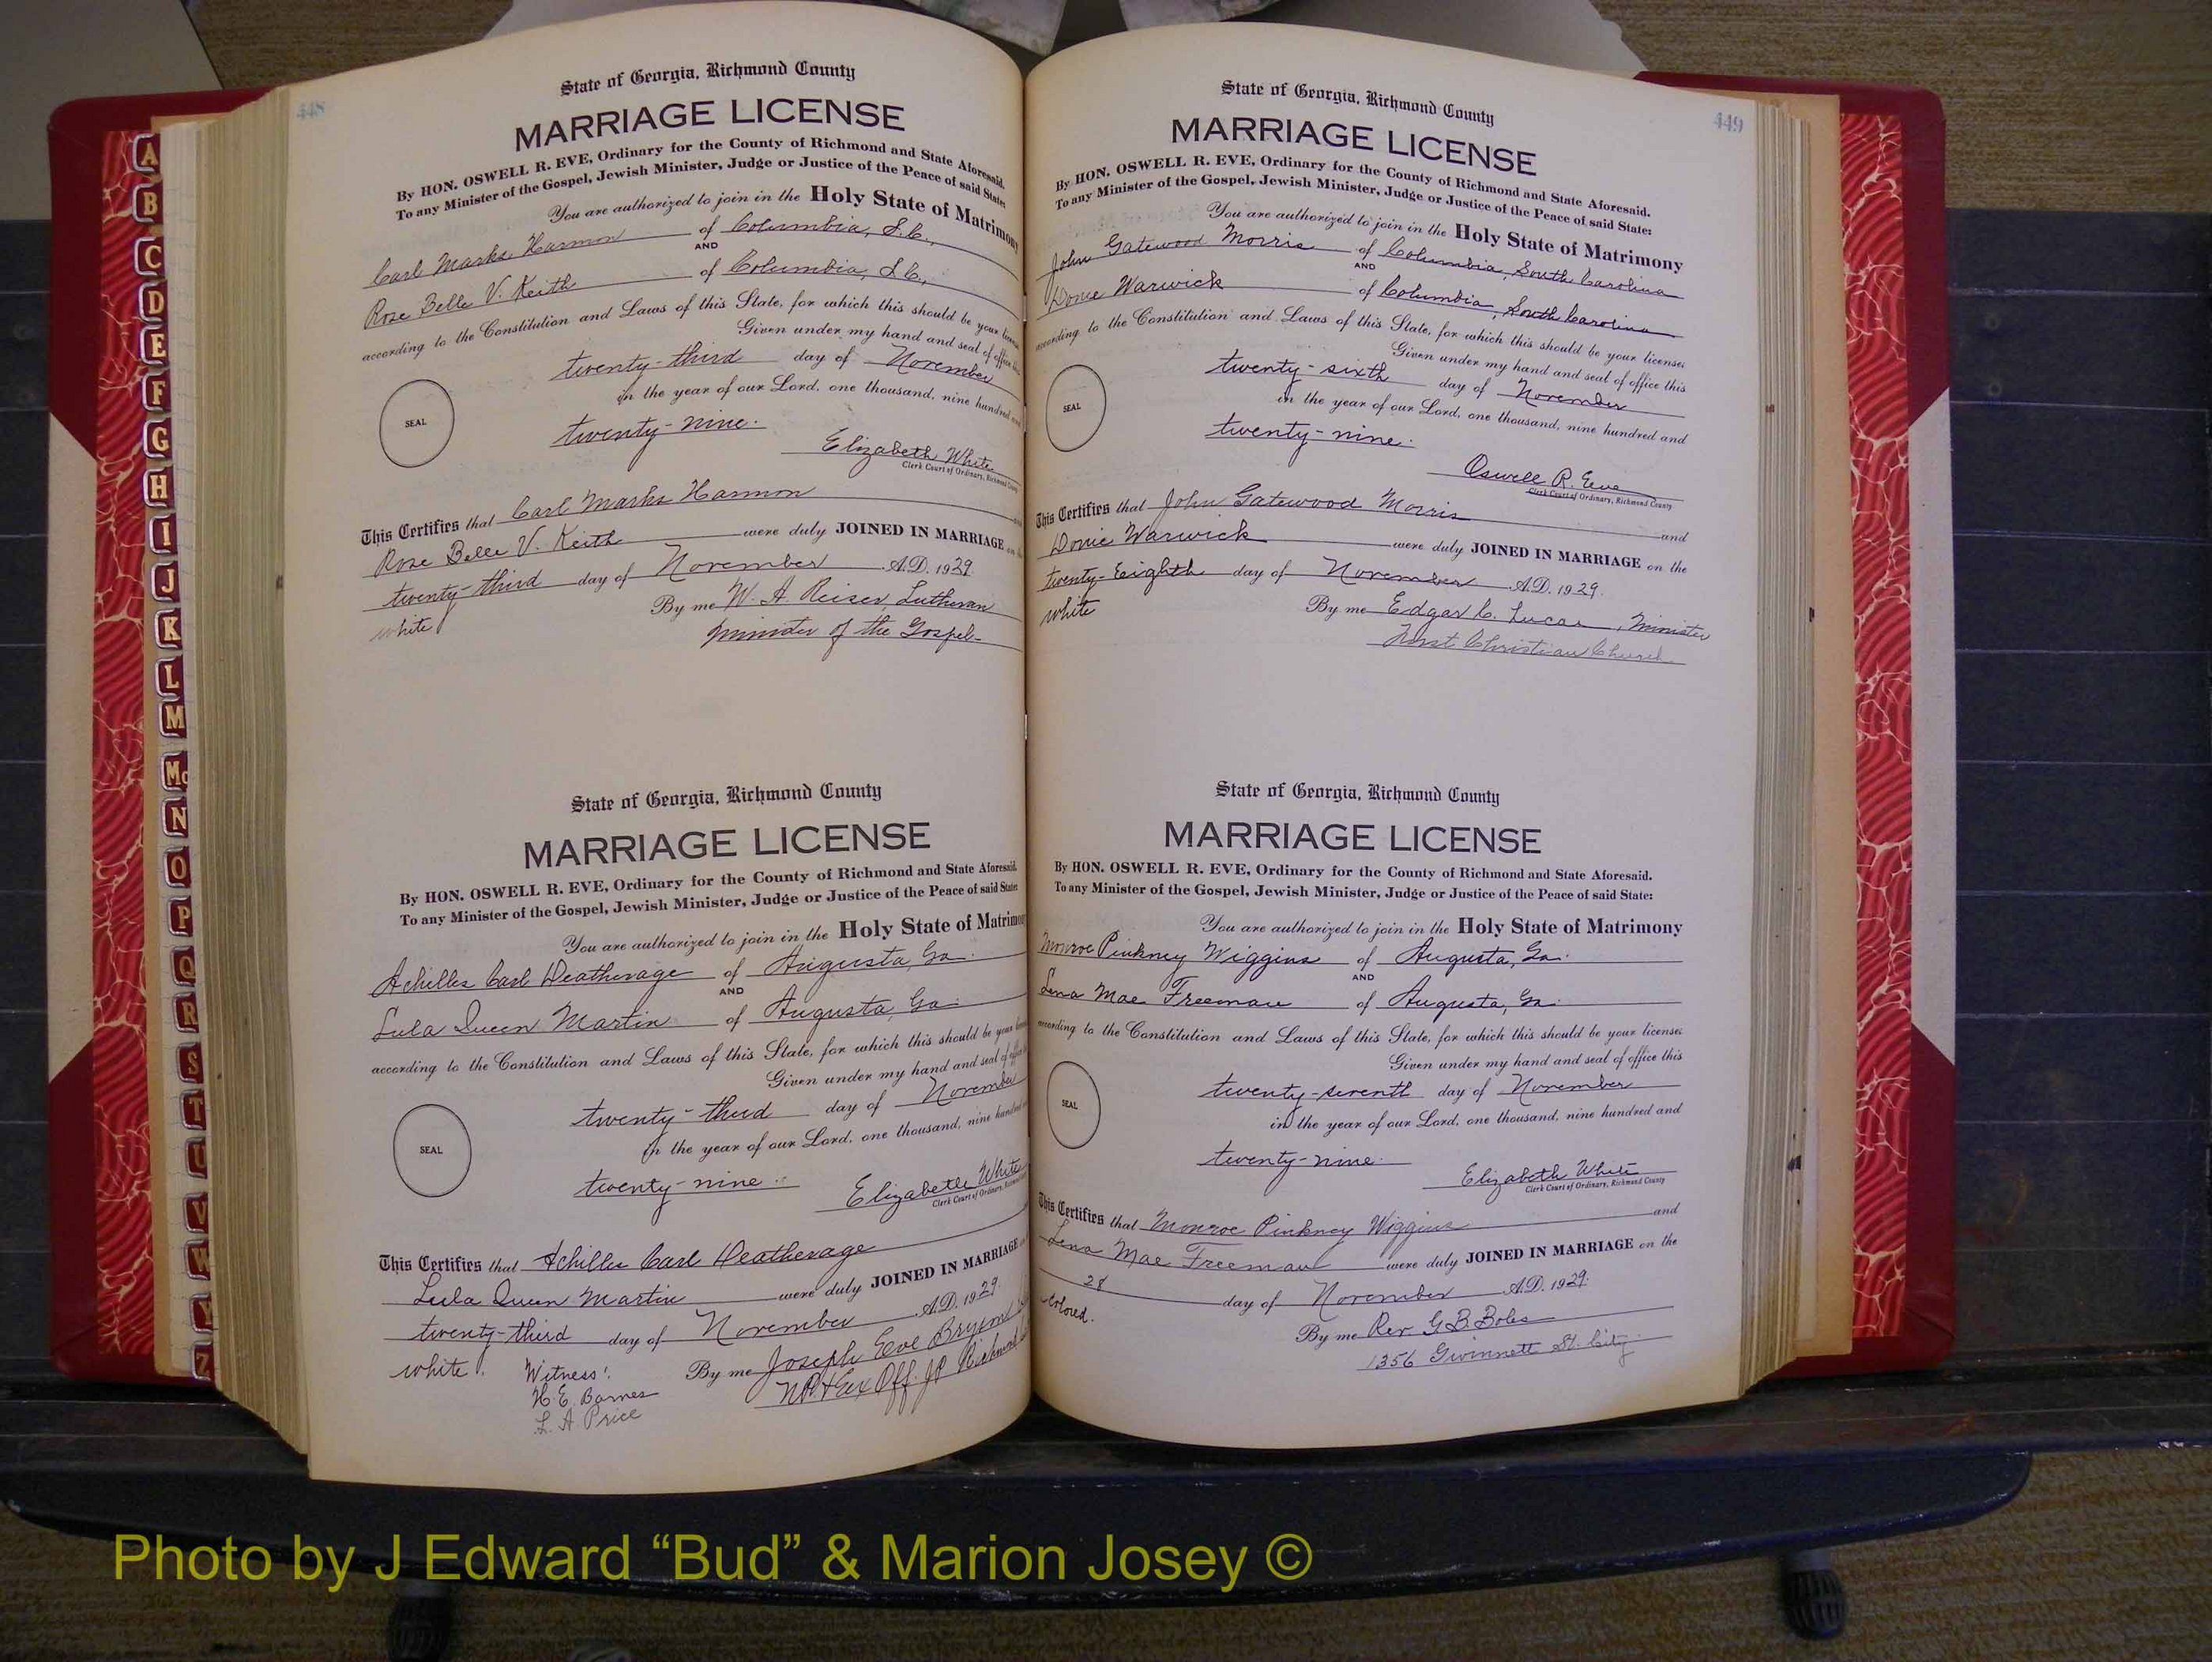 448
State of Georgia, Richmond County
MARRIAGE LICENSE
By HON. OSWELL R. EVE, Ordinary for the County of Richmond and State Aforesaid.
To any Minister of the Gospel, Jewish Minister, Judge or Justice of the Peace of said State:
You are authorized to join in the Holy State of Matrimony
Carl Marks Harmon of Columbia, S.C.,
AND
Rose Belle V. Keith of Columbia, S.C.,
according to the Constitution and Laws of this State, for which this should be your license
Given under my hand and seal of office this
twenty-third day of November
in the year of our Lord, one thousand, nine hundred and
SEAL
twenty-nine.
Elizabeth White
Clerk Court of Ordinary, Richmond County
This Certifies that Carl Marks Harmon
Rose Belle V. Keith were duly JOINED IN MARRIAGE on
twenty-third day of November A.D. 1929.
white By me W. A. Reiser, Lutheran
minister of the Gospel
State of Georgia, Richmond County
MARRIAGE LICENSE
By HON. OSWELL R. EVE, Ordinary for the County of Richmond and State Aforesaid.
To any Minister of the Gospel, Jewish Minister, Judge or Justice of the Peace of said State:
You are authorized to join in the Holy State of Matrimony
Achilles Carl Deatherage of Augusta, Ga.
AND
Lula Queen Martin of Augusta, Ga.
according to the Constitution and Laws of this State, for which this should be your
Given under my hand and seal of office
twenty-third day of November
in the year of our Lord, one thousand, nine hundred
SEAL
twenty-nine.
Elizabeth White
Clerk Court of Ordinary, Richmond
This Certifies that Achilles Carl Deatherage
Lula Queen Martin were duly JOINED IN MARRIAGE
twenty-third day of November A.D. 1929.
white. Witness: By me Joseph Eve
H. E. Barnes NP & Ex Off. JP Richmond
L. A. Price
449
State of Georgia, Richmond County
MARRIAGE LICENSE
By HON. OSWELL R. EVE, Ordinary for the County of Richmond and State Aforesaid.
To any Minister of the Gospel, Jewish Minister, Judge or Justice of the Peace of said State:
You are authorized to join in the Holy State of Matrimony
John Gatewood Morris of Columbia, South Carolina
AND
Donie Warwick of Columbia, South Carolina
according to the Constitution and Laws of this State, for which this should be your license:
Given under my hand and seal of office this
twenty-sixth day of November
in the year of our Lord, one thousand, nine hundred and
SEAL
twenty-nine.
Oswell R. Eve
Clerk Court of Ordinary, Richmond County
This Certifies that John Gatewood Morris and
Donie Warwick were duly JOINED IN MARRIAGE on the
twenty-Eighth day of November A.D. 1929.
white By me Edgar C. Lucas, Minister
First Christian Church
State of Georgia, Richmond County
MARRIAGE LICENSE
By HON. OSWELL R. EVE, Ordinary for the County of Richmond and State Aforesaid.
To any Minister of the Gospel, Jewish Minister, Judge or Justice of the Peace of said State:
You are authorized to join in the Holy State of Matrimony
Monroe Pinkney Wiggins of Augusta, Ga.
AND
Lena Mae Freeman of Augusta, Ga.
according to the Constitution and Laws of this State, for which this should be your license:
Given under my hand and seal of office this
twenty-seventh day of November
in the year of our Lord, one thousand, nine hundred and
SEAL
twenty-nine.
Elizabeth White
Clerk Court of Ordinary, Richmond County
This Certifies that Monroe Pinkney Wiggins and
Lena Mae Freeman were duly JOINED IN MARRIAGE on the
28 day of November A.D. 1929.
Colored. By me Rev. G.B. Boles
1356 Gwinnett St. City
A
B
C
D
E
F
G
H
I
J
K
L
M
Mc
N
O
P
Q
R
S
T
U
V
W
Y
Z
Photo by J Edward “Bud” & Marion Josey ©